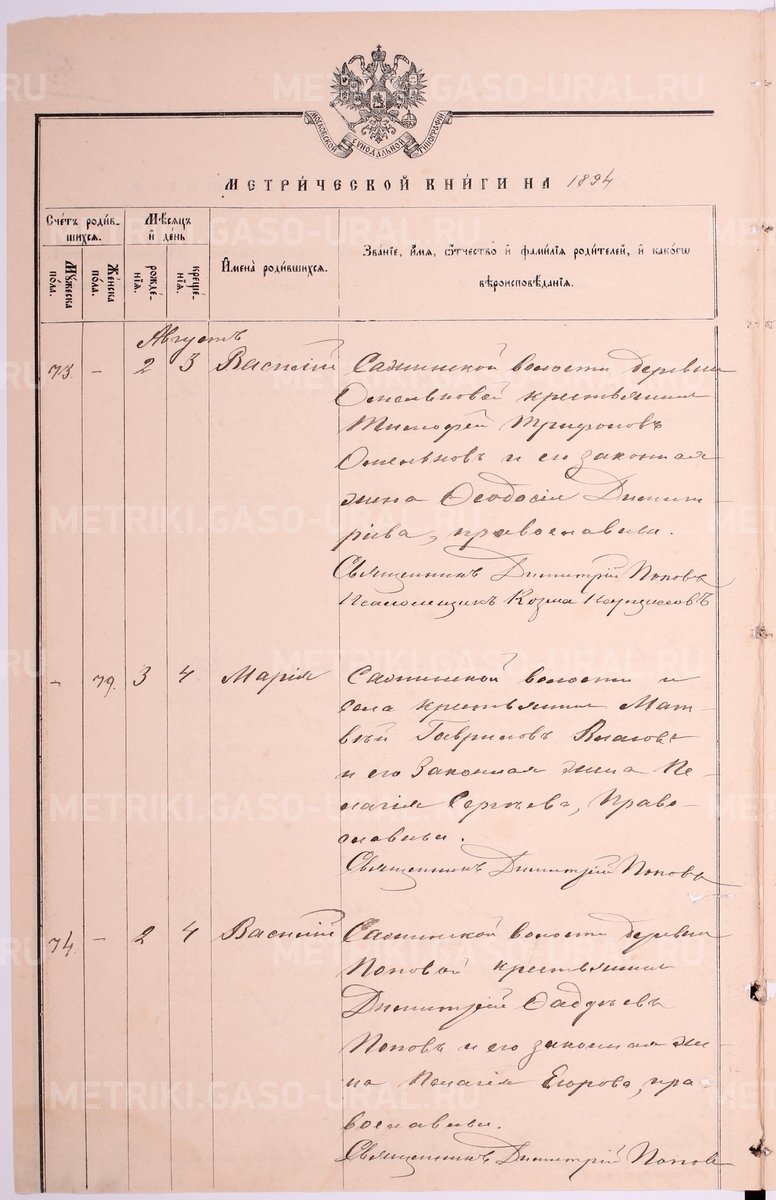 МОСКОВСКОЙ СѴНОДАЛЬНОЙ ТИПОГРАФІИ
МЕТРИ́ЧЕСКОЙ КНИ́ГИ НА 1894
Сче́тъ роди́вшихся.
Мꙋжеска по́ла.
Же́нска по́ла.
Мѣ́сяцъ и҆ де́нь
рожде́нїѧ.
креще́нїѧ.
И҆мена̀ роди́вшихся.
Зва́нїе, и҆́мѧ, ѻ҆́тчество и҆ фами́лїѧ роди́телей, и҆ како́гѡ
вѣроисповѣ́данїѧ.
Августъ
73. - 2 3 Василій Сажинской волости деревни
Омельковой крестьянинъ
Тимофей Трифоновъ
Омельковъ и его законная
жена Ѳеодосія Димит-
ріева, православны.
Священникъ Димитрій Поповъ
Псаломщикъ Козма
- 79. 3 4 Марія Сажинской волости и
села крестьянинъ Мат-
вѣй Гавриловъ Власовъ
и его законная жена Пе-
лагія Сергѣева, право-
славны.
Священникъ Димитрій Поповъ
74. - 2 4 Василій Сажинской волости деревни
Поповой крестьянинъ
Димитрій Ѳаддѣевъ
Поповъ и его законная же-
на Пелагія Егорова, пра-
вославны.
Священникъ Димитрій Поповъ
METRIKI.GASO-URAL.RU